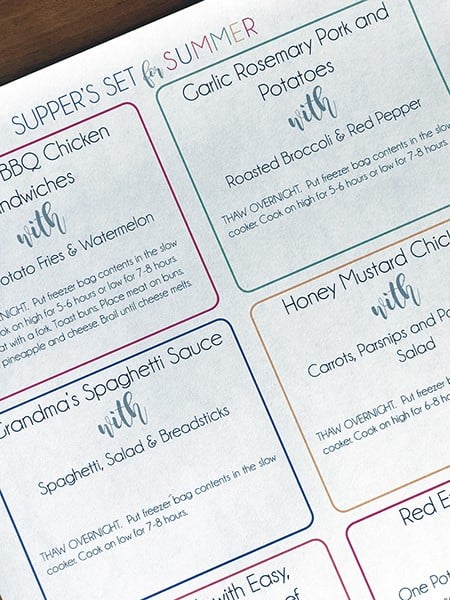 SUPPER'S SET for SUMMER
BBQ Chicken
with
Fries & Watermelon
Put freezer bag contents in the slow
on high for 5-6 hours or low for 7-8 hours.
with a fork. Toast buns. Place meat on buns.
pineapple and cheese. Broil until cheese melts.
Garlic Rosemary Pork and
Potatoes
with
Roasted Broccoli & Red Pepper
THAW OVERNIGHT. Put freezer bag contents in the slow
cooker. Cook on high for 5-6 hours or low for 7-8 hours.
Grandma's Spaghetti Sauce
with
Spaghetti, Salad & Breadsticks
THAW OVERNIGHT. Put freezer bag contents in the slow
cooker. Cook on low for 7-8 hours.
Honey Mustard
with
Carrots, Parsnips and
Salad
THAW OVERNIGHT. Put freezer
cooker. Cook on high for 6-8
with Easy,
Red
One